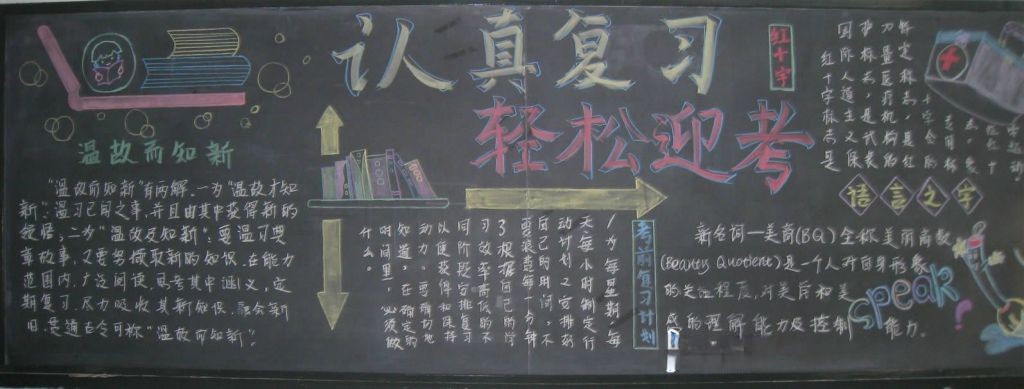 认真复习
轻松迎考
温故而知新
"温故而知新"有两解,一为"温故才知
新":温习已闻之事,并且由其中获得新的
领悟;二为"温故及知新":要温习典
章故事,又要努力撷取新的知识,在能力
范围内,广泛阅读,思考其中涵义,定
期复习,尽力吸收其新知识,融会新
旧、贯通古今可称"温故而知新"。
考前复习计划
1为每星期、每
天、每小时制定行
动计划,2安排好
自己的时间,不
要浪费每一分钟
3根据自己的学
习效率高低的不
同阶段安排复习
以便获得和保持
动力,要确切地
知道,在确定的
时间里,必须做
什么。
红十字
红十字标志是
国际人道主义保
护标志,是武装
力量医疗机构的
特定标志,是红
十字会的
语言之字
新名词—美商(BQ)全称美丽商数
(Beauty Quotient)是一个人对自身形象
的关注程度,对美学和美
感的理解能力及控制 能力。
speak
?